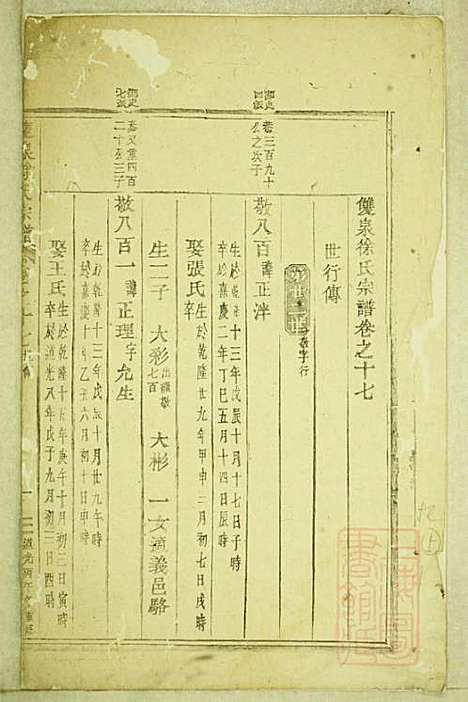 雙泉徐氏宗譜卷之十七
世行傳
敬字行
敬八百諱正泮
生於乾隆十三年戊辰十月十七日子時
卒於嘉慶二年丁巳五月十四日辰時
娶張氏
生於乾隆廿九年甲申三月初七日戌時
卒
生二子 大彩出繼敬七百 大彬 一女適義邑駱
敬八百一諱正理字允生
生於乾隆十三年戊辰十月廿九午時
卒於嘉慶十年乙丑六月初十日申時
娶王氏
生於乾隆十五年庚午十月初二日寅時
卒於道光八年戊子九月初三日酉時
卷三百九十
公之次子
嘉义堂四百
二十公三子
雙泉徐氏宗譜
道光丙午